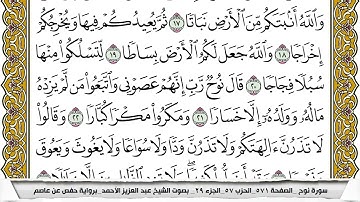 وَٱللَّهُ أَنۢبَتَكُم مِّنَ ٱلْأَرْضِ نَبَاتًا ١٧ ثُمَّ يُعِيدُكُمْ فِيهَا وَيُخْرِجُكُمْ
إِخْرَاجًا ١٨ وَٱللَّهُ جَعَلَ لَكُمُ ٱلْأَرْضَ بِسَاطًا ١٩ لِّتَسْلُكُوا۟ مِنْهَا
سُبُلًا فِجَاجًا ٢٠ قَالَ نُوحٌ رَّبِّ إِنَّهُمْ عَصَوْنِى وَٱتَّبَعُوا۟ مَن لَّمْ يَزِدْهُ
مَالُهُۥ وَوَلَدُهُۥٓ إِلَّا خَسَارًا ٢١ وَمَكَرُوا۟ مَكْرًا كُبَّارًا ٢٢ وَقَالُوا۟
لَا تَذَرُنَّ ءَالِهَتَكُمْ وَلَا تَذَرُنَّ وَدًّا وَلَا سُوَاعًا وَلَا يَغُوثَ وَيَعُوقَ
سورة نوح_ الصفحة ٥٧١_الحزب ٥٧_الجزء ٢٩_ بصوت الشيخ عبد العزيز الأحمد_ برواية حفص عن عاصم